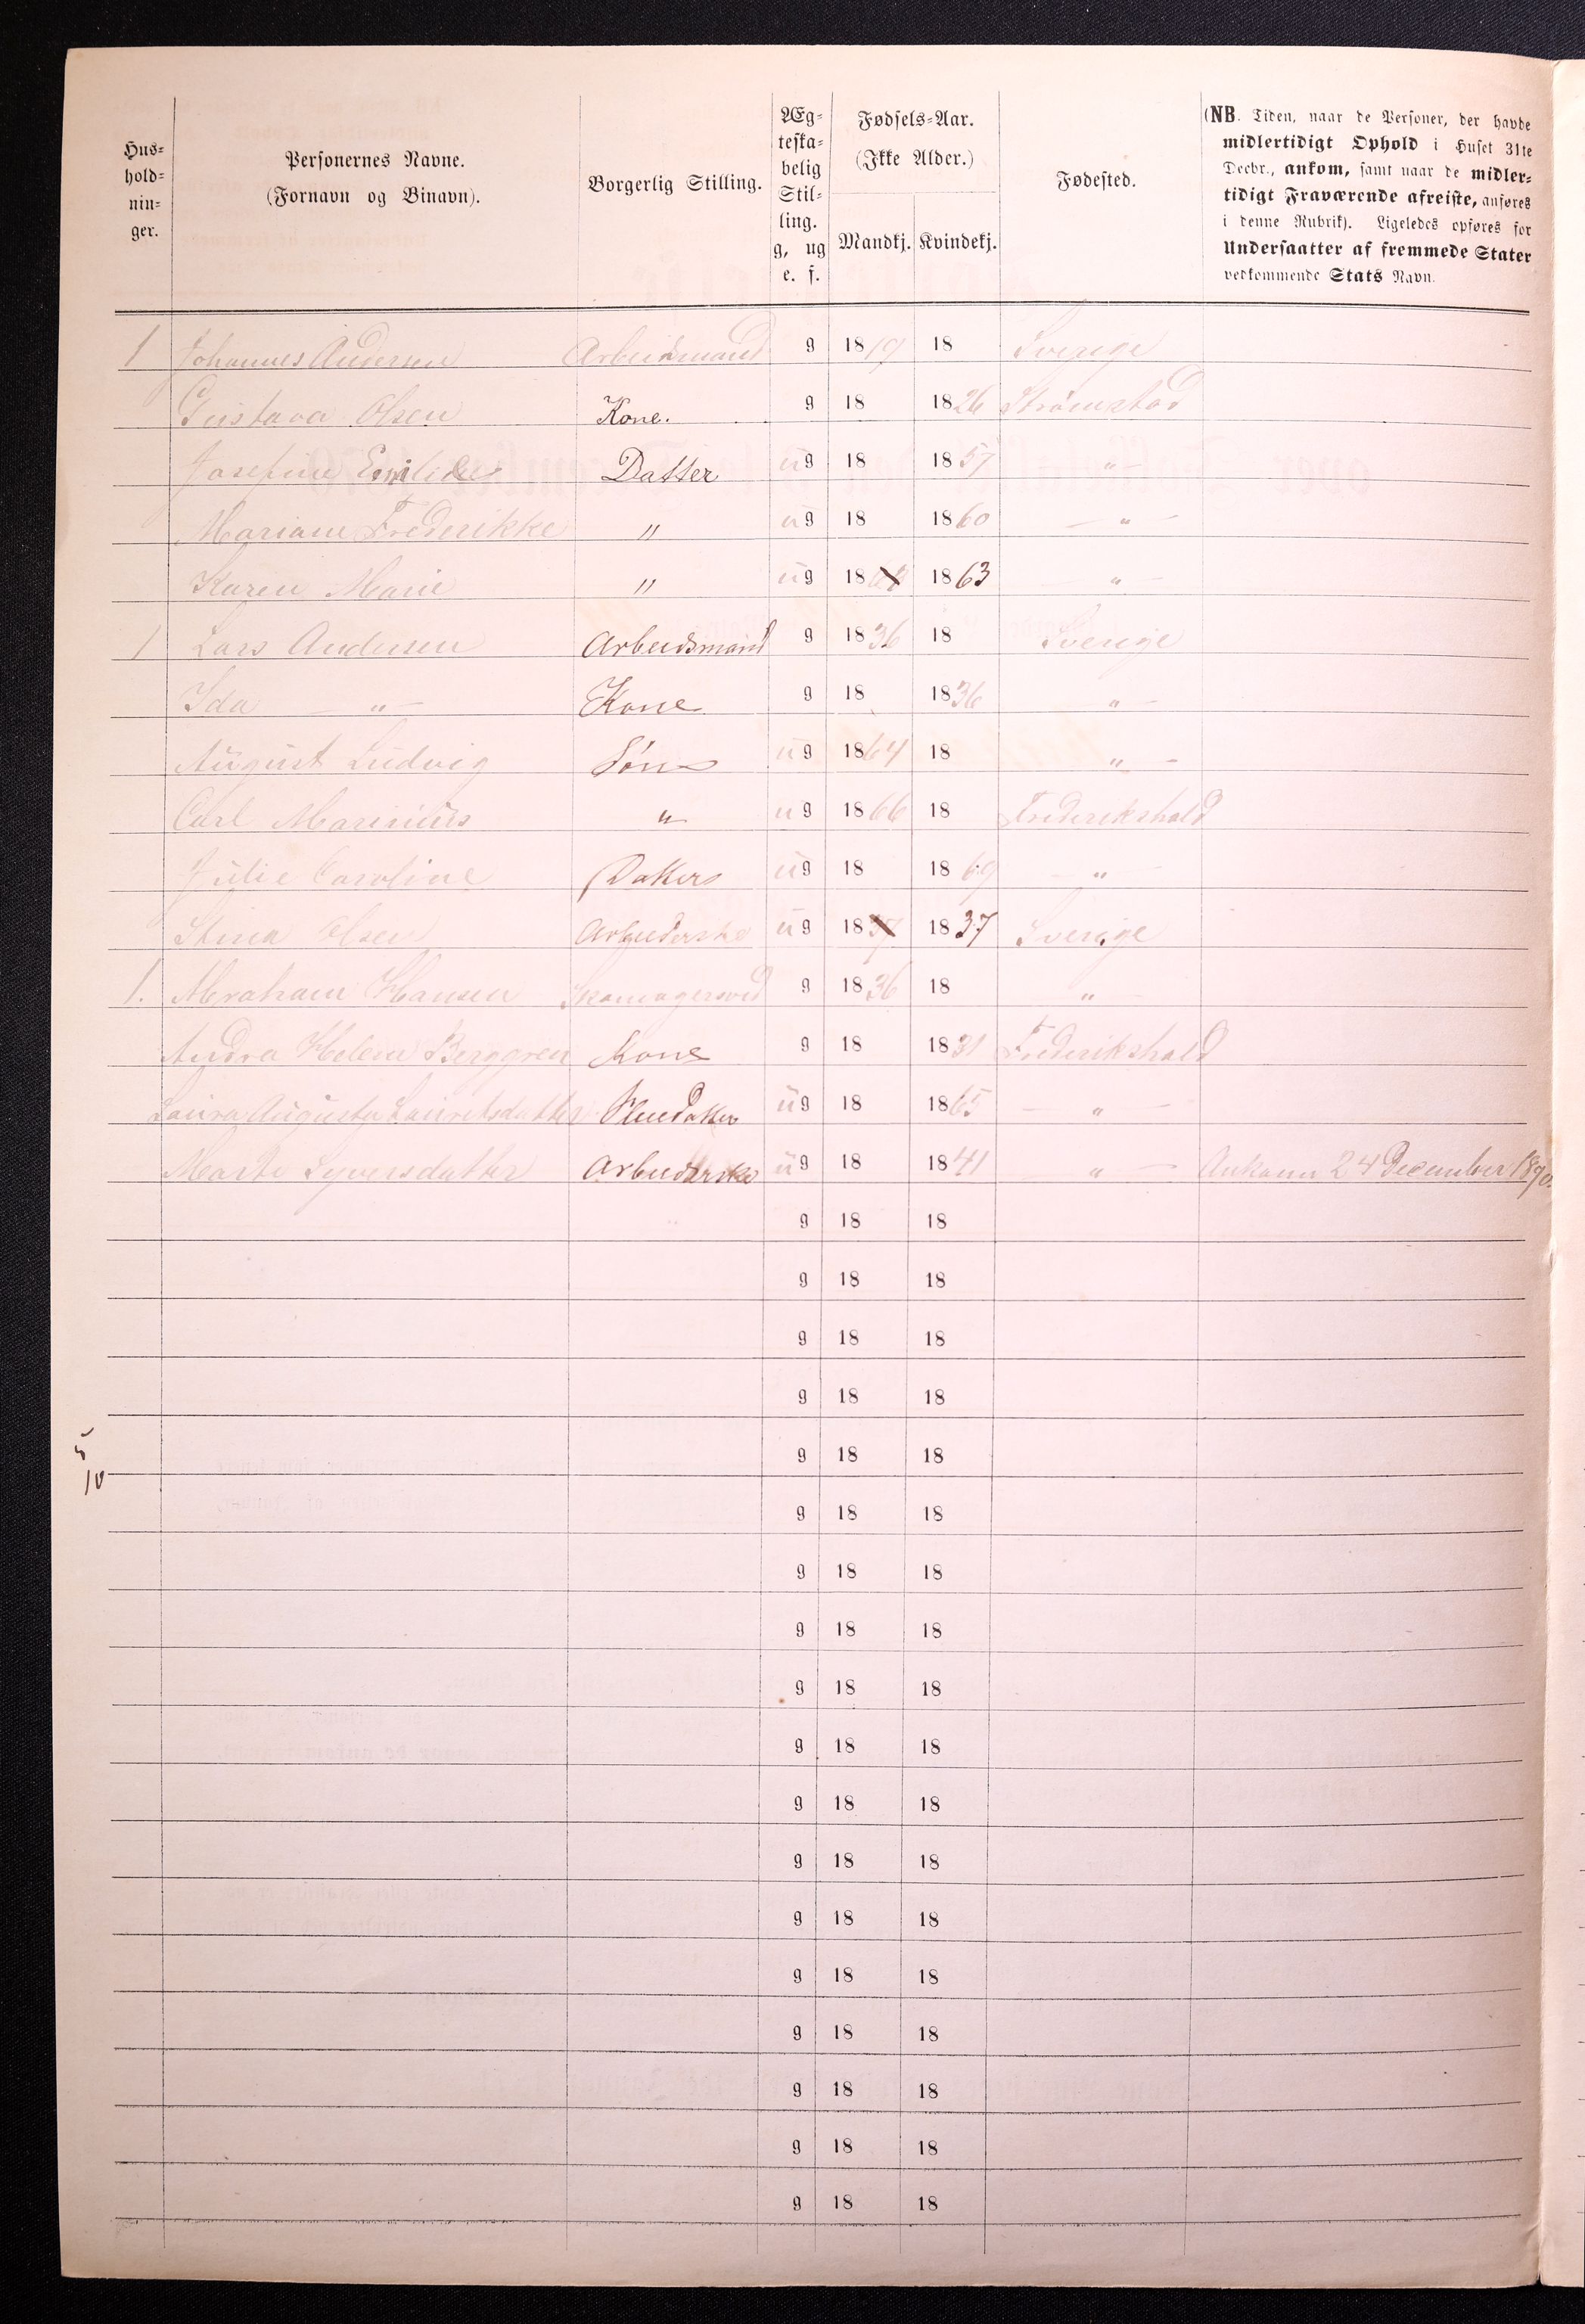 Hus=
hold=
nin=
ger.
Personernes Navne.
(Fornavn og Binavn).
Borgerlig Stilling.
Æg=
teska=
belig
Stil=
ling.
g, ug
e. f.
Fødsels=Aar.
(Ikke Alder.)
Mandkj. Kvindekj.
Fødested.
(NB. Tiden, naar de Personer, der havde
midlertidigt Ophold i Huset 31te
Decbr., ankom, samt naar de midler=
tidigt Fraværende afreiste, anføres
i denne Rubrik). Ligeledes opføres for
Undersaatter af fremmede Stater
vedkommende Stats Navn.
1 Johannes Andersen Arbeidsmand g 1819 18 Sverige
Gustava Olsen Kone. g 18 1826 Strømstad
Josefine ug 18 1857 Datter "
Mariane Frederikke " ug 18 1860 "
Karen Marie " ug 18 1863 "
1 Lars Andersen Arbeidsmand g 1836 18 Sverige
Ida " Kone g 18 1836 "
August Ludvig Søn ug 1864 18 "
Carl Marinius " ug 1866 18 Frederikshald
Julie Caroline Datter ug 18 1869 "
Stina Olsen Arbeiderske ug 18 1837 Sverige
1. Abraham Hansen g 1836 18 "
Andra Helena Berggren Kone g 18 1831 Frederikshald
Laura Augusta Lauritsdatter ug 18 1865 "
Marte Syversdatter Arbeiderske ug 18 1841 " Ankom 24 December 1870.
g 18 18
g 18 18
g 18 18
g 18 18
5
g 18 18
10
g 18 18
g 18 18
g 18 18
g 18 18
g 18 18
g 18 18
g 18 18
g 18 18
g 18 18
g 18 18
g 18 18
g 18 18
g 18 18